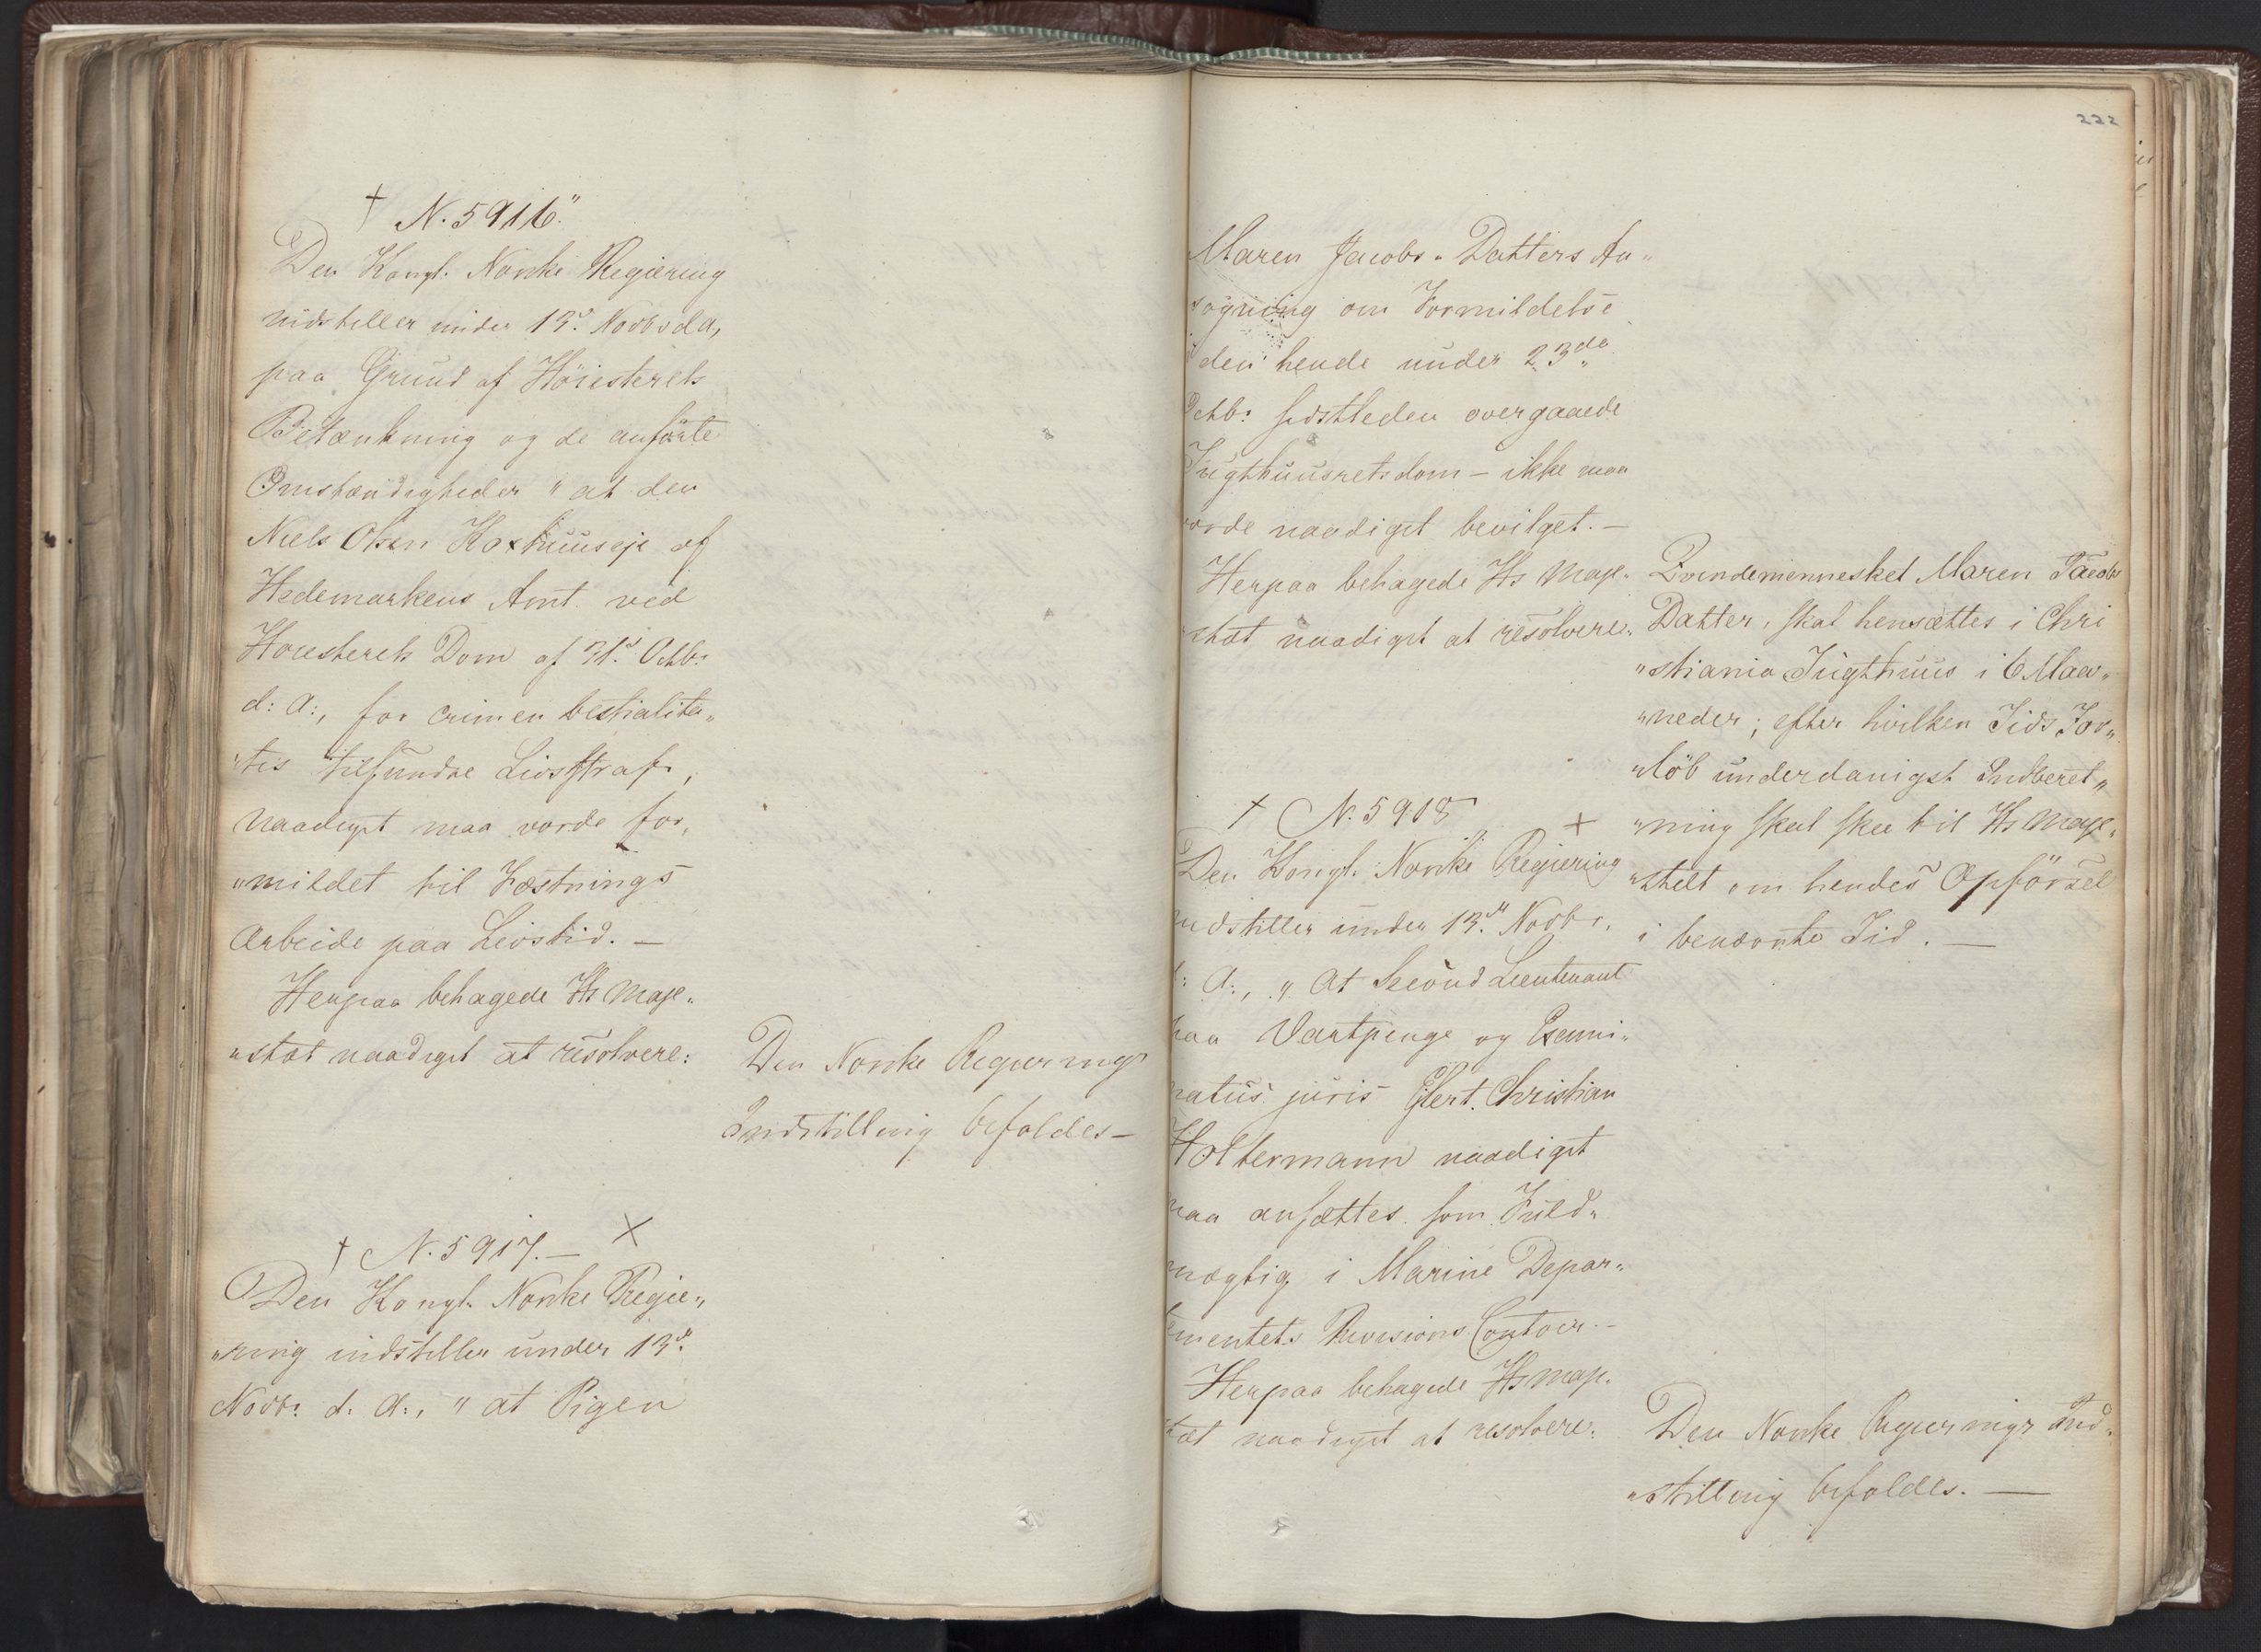 † N. 5916."
Den Kongl. Norske Regiering
indstiller under 13d. Novbr d. A,
paa Grund af Höiesterets
Betænkning og de anförte
Omstændigheder " at den
Niels Olsen Haxhuuseje af
Hedemarkens Amt ved
Hoiesterets Dom af 31d. Octbr.
d: A:, for crimen bestialita„
„tis tilfundne Livsstraf,
naadigst maa vorde for„
„mildet til Fæstnings
Arbeide paa Livstid. —
Herpaa behagede Hs Maje„
„stæt naadigst at resolvere:
Den Norske Regierings
Indstilling bifaldes —
† N. 5917. — X
Den Kongl. Norske Regie„
„ring indstiller under 13d.
Novbr. d. A., " at Pigen
222
Maren Jacobs„Datters An„
søgning om Formildelse
i den hende under 23de
Octbr. sidstleden overgaaede
Tugthuusretsdom — ikke maa
vorde naadigst bevilget. —
Herpaa behagede Hs Maje„
stæt naadigst at resolvere:
Qvindemennesket Maren Jacobs
Datter, skal hensættes i Chri
„stiania Tugthuus i 6 Maa„
„neder; efter hvilken Tids For„
„löb underdanigst Indberet„
„ning skal skee til Hs Maje„
„stæt om hendes Opförsel
i benævnte Tid. —
† N. 5918 X
Den Kongl. Norske Regiering
indstiller under 13d. Novbr.
d: A:, " At Second Lieutenant
paa Vartpenge og Exami„
natus juris Eilert Christian
Holtermann naadigst
maa ansættes som Fuld„
mægtig i Marine Depar„
tementets Revisions Contoir. —
Herpaa behagede Hs Maje.
stæt naadigst at resolvere:
Den Norske Regierings Ind„
„stilling bifaldes. —